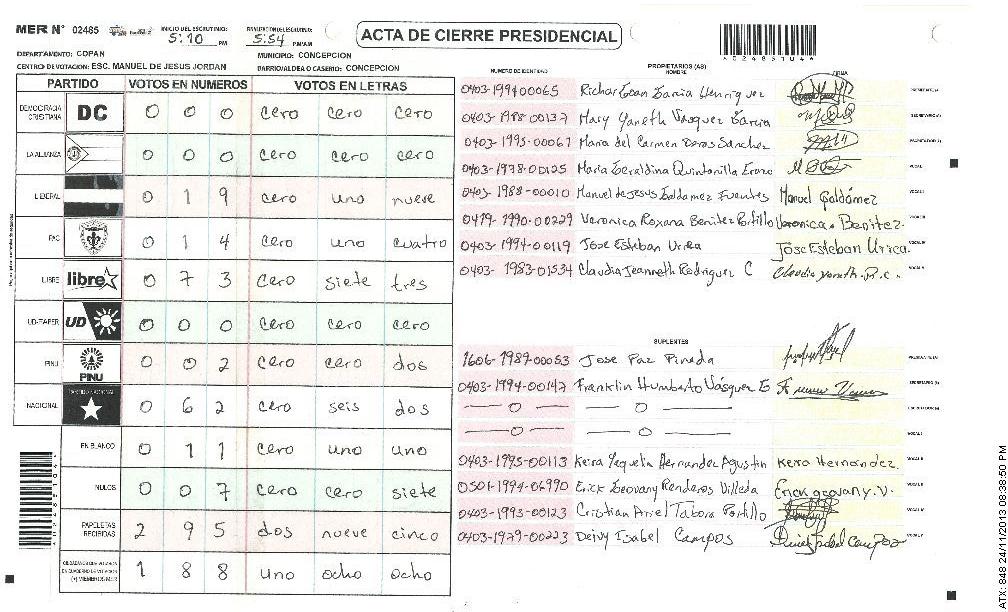 MER N° 02485 INICIO DEL ESCRUTINIO: 5:10 PM FINALIZACION DEL ESCRUTINIO: 5:54 PM/AM
ACTA DE CIERRE PRESIDENCIAL
DEPARTAMENTO: COPAN MUNICIPIO: CONCEPCION
CENTRO DE VOTACION: ESC. MANUEL DE JESUS JORDAN BARRIO/ALDEA O CASERIO: CONCEPCION
PARTIDO VOTOS EN NUMEROS VOTOS EN LETRAS
DEMOCRACIA CRISTIANA DC 0 0 0 cero cero cero
LA ALIANZA 0 0 0 cero cero cero
LIBERAL 0 1 9 cero uno nueve
PAC 0 1 4 cero uno cuatro
LIBRE libre 0 7 3 cero siete tres
UD-FAPER UD 0 0 0 cero cero cero
PINU PINU 0 0 2 cero cero dos
NACIONAL PARTIDO NACIONAL 0 6 2 cero seis dos
EN BLANCO 0 1 1 cero uno uno
NULOS 0 0 7 cero cero siete
PAPELETAS RECIBIDAS 2 9 5 dos nueve cinco
CIUDADANOS QUE VOTARON EN CUADERNO DE VOTACION (+) MIEMBROS MER 1 8 8 uno ocho ocho
NUMERO DE IDENTIDAD PROPIETARIOS (AS) NOMBRE FIRMA
0403-199400065
0403-1988-00137 Mary Yaneth Vásquez Garcia SECRETARIO(A)
0403-1995-00067 Maria del Carmen Deras Sanchez
0403-1978-00125 Maria Geraldina Quintanilla
0403-1988-00010 Manuel de Jesus Galdamez Fuentes Manuel Galdámez
0419-1990-00229 Veronica Roxana Benitez Portillo Veronica Benitez
0403-1994-00119 Jose Esteban Urrea
0403-1983-01534 Claudia Jeanneth Rodriguez C
SUPLENTES
1606-1987-00053 Jose Paz Pineda
0403-1994-00147 Franklin Humberto Vásquez
0
0
0403-1995-00113 Keira Yequelin Hernandez Agustin Keira Hernandez
0501-1994-06990 Erick Geovany Renderos Villeda Erick geovany V.
0403-1993-00123 Cristian Ariel Tabora Portillo
0403-1979-00223 Deivy Isabel Campos
ATX: 848 24/11/2013 08:38:50 PM